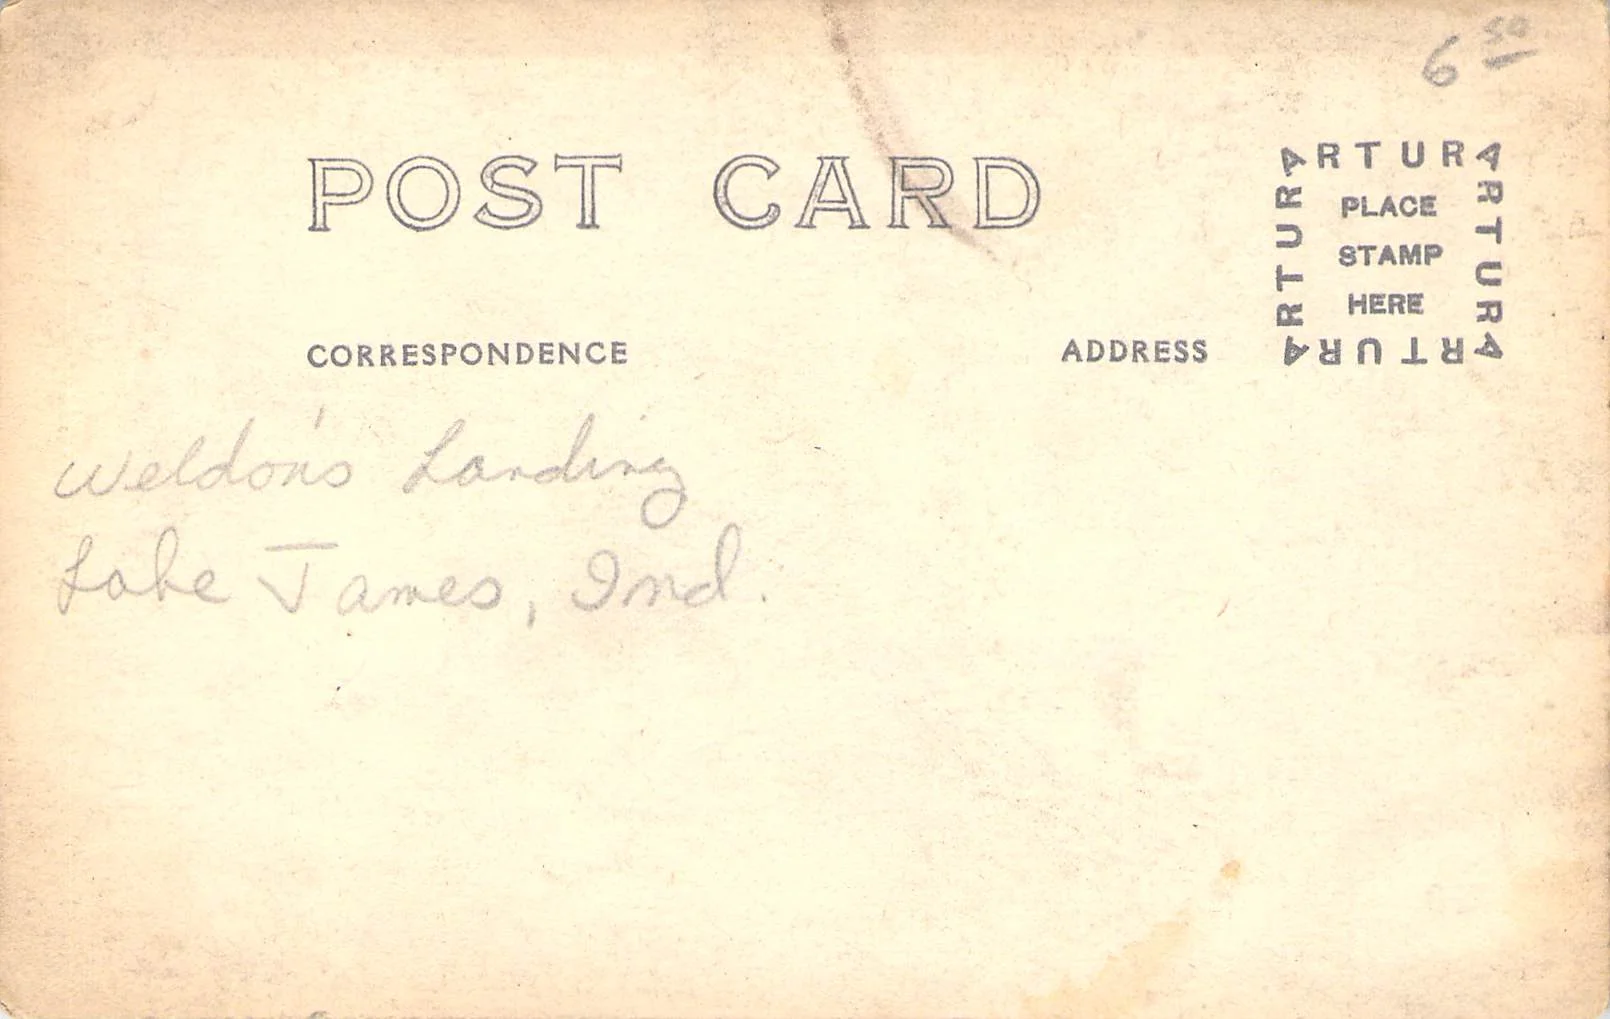 6 50
POST CARD
ARTURA
ARTURA
ARTURA
ARTURA
PLACE
STAMP
HERE
CORRESPONDENCE
ADDRESS
Weldon's Landing
Lake James, Ind.